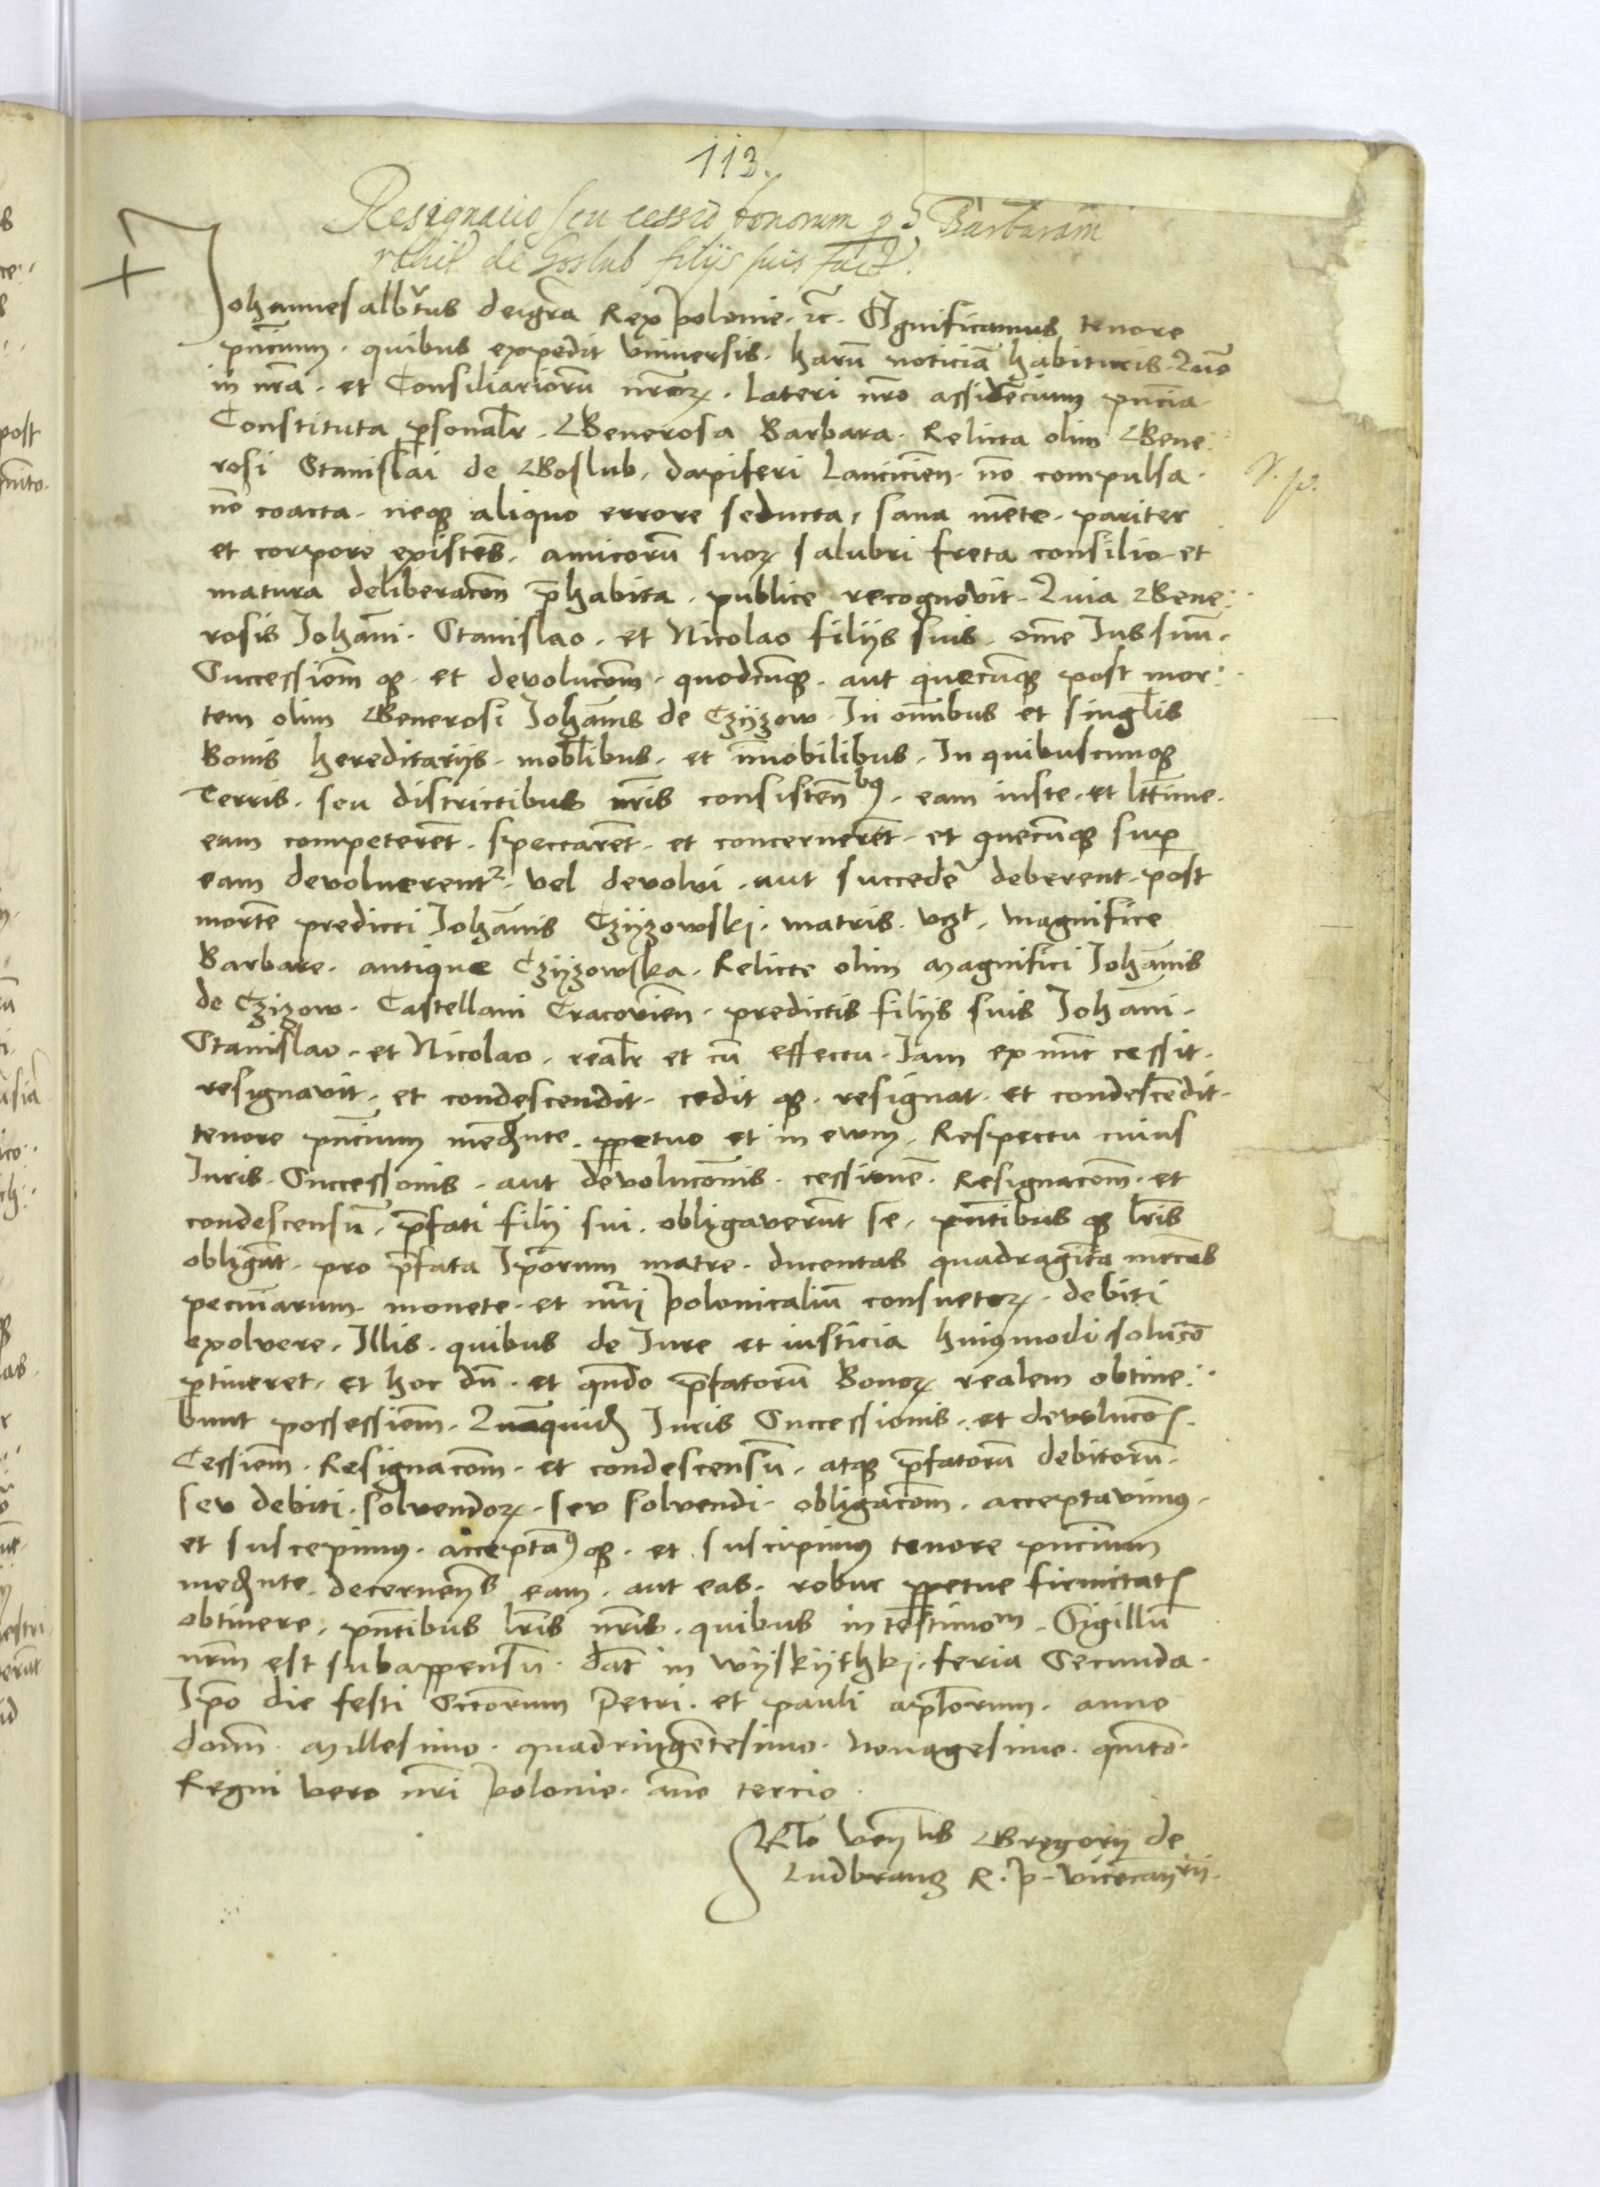 113.
Resignacio seu cessio bonorum Barbaram
de Goslub filijs suis
Johannes albtus dei gra Rex polonie. Significamus tenore
pncium. quibus expedit vniuersis. harum noticia habituris. Quo
in nra. et Consiliarioru nror. lateri nro assidenciu pncia
Constituta psonalr. Generosa Barbara. Relicta olim Gene
rosi Stanislai de Goslub. dapiferi Lancicien. no compulsa.
no coacta. neq aliquo errore seducta, sana mete. pariter
et corpore existes. amicoru suor salubri freta consilio et
matura deliberacon phabita. publice recognovit. Quia Gene
rosis Johani. Stanislao. et Nicolao filijs suis. ome Ius suu.
Successiom q. et devolucom. quodcunq. aut quecunq post mor
tem olim Generosi Johanis de Czyzow. In omibus et singlis
Bonis hereditarijs. moblibus. et imobilibus. In quibuscunq
Terris. seu districtibus nris consistenbq. eam iuste. et lttime.
eam competeret. spectaret. et concerneret. et quecunq sup
eam devoluerent. vel devolvi. aut succede deberent. post
morte predicti Johanis Czyzowski. matris. vz. magnifice
Barbare. antique Czyzowska. Relicte olim magnifici Johanis
de Czizow. Castellani Cracovien. predictis filijs suis Johani.
Stanislao. et Nicolao. realr et cu effectu. Iam ex nuc cessit.
resignavit. et condescendit. cedit q. resignat. et condescedit.
tenore pncium mediante. ppetuo et in ewm. Respectu cuius
Iuris. Successionis. aut devolucionis. cessione. Resignacom. et
condescensu. pfati filij sui. obligaverut se. pntibus q lris
obligat. pro pfata Iporum matre. ducentas quadraginta mrcas
pecuniarum. monete. et nui polonicaliu consuetor. debiti
exolvere. Illis. quibus de Iure et iusticia huiusmodi soluco
ptineret. et hoc du. et qndo pfatoru Bonor realem obtine
bunt possessiom. Quaquid Iuris Successionis. et devoluco.
Cessiom. Resignacom. et condescensu. atq pfatoru debitoru.
seu debiti. solvendor. seu solvendi. obligacom. acceptavimus.
et suscepimus. acceptaq q. et suscipimus tenore pncium
mediante. decernens eam. aut eas. robur ppetue firmitat
obtinere. pntibus lris nris. quibus in testimom. Sigillu
nrm est subappensu. dat in wyskythkj. feria Secunda.
Ipo die festi Sctorum Petri. et pauli aplorum. anno
domi. millesimo. quadringetesimo. Nonagesimo. quito.
Regni vero nri polonie. ano tercio.
Rlo Gregorij de
Ludbrancz R. p. vicecanrii.